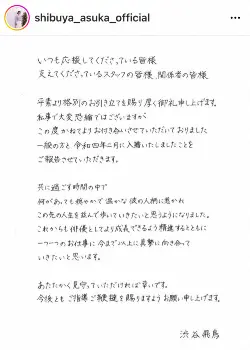 shibuya_asuka_official
いつも応援してくださっている皆様
支えてくださっているスタッフの皆様、関係者の皆様
平素より格別のお引き立てを賜り厚く御礼申し上げます。
私事で大変恐縮ではございますが
この度かねてよりお付き合いさせていただいておりました
一般の方と令和四年二月に入籍いたしましたことを
ご報告させていただきます。
共に過ごす時間の中で
何があっても穏やかで温かな彼の人柄に惹かれ
この先の人生を並んで歩いていきたいと思うようになりました。
これからも俳優としてより成長できるよう精進するとともに
一つ一つのお仕事に今まで以上に真摯に向き合って
いきたいと思います。
あたたかく見守っていただければ幸いです。
今後ともご指導ご鞭撻を賜りますようお願い申し上げます。
渋谷飛鳥